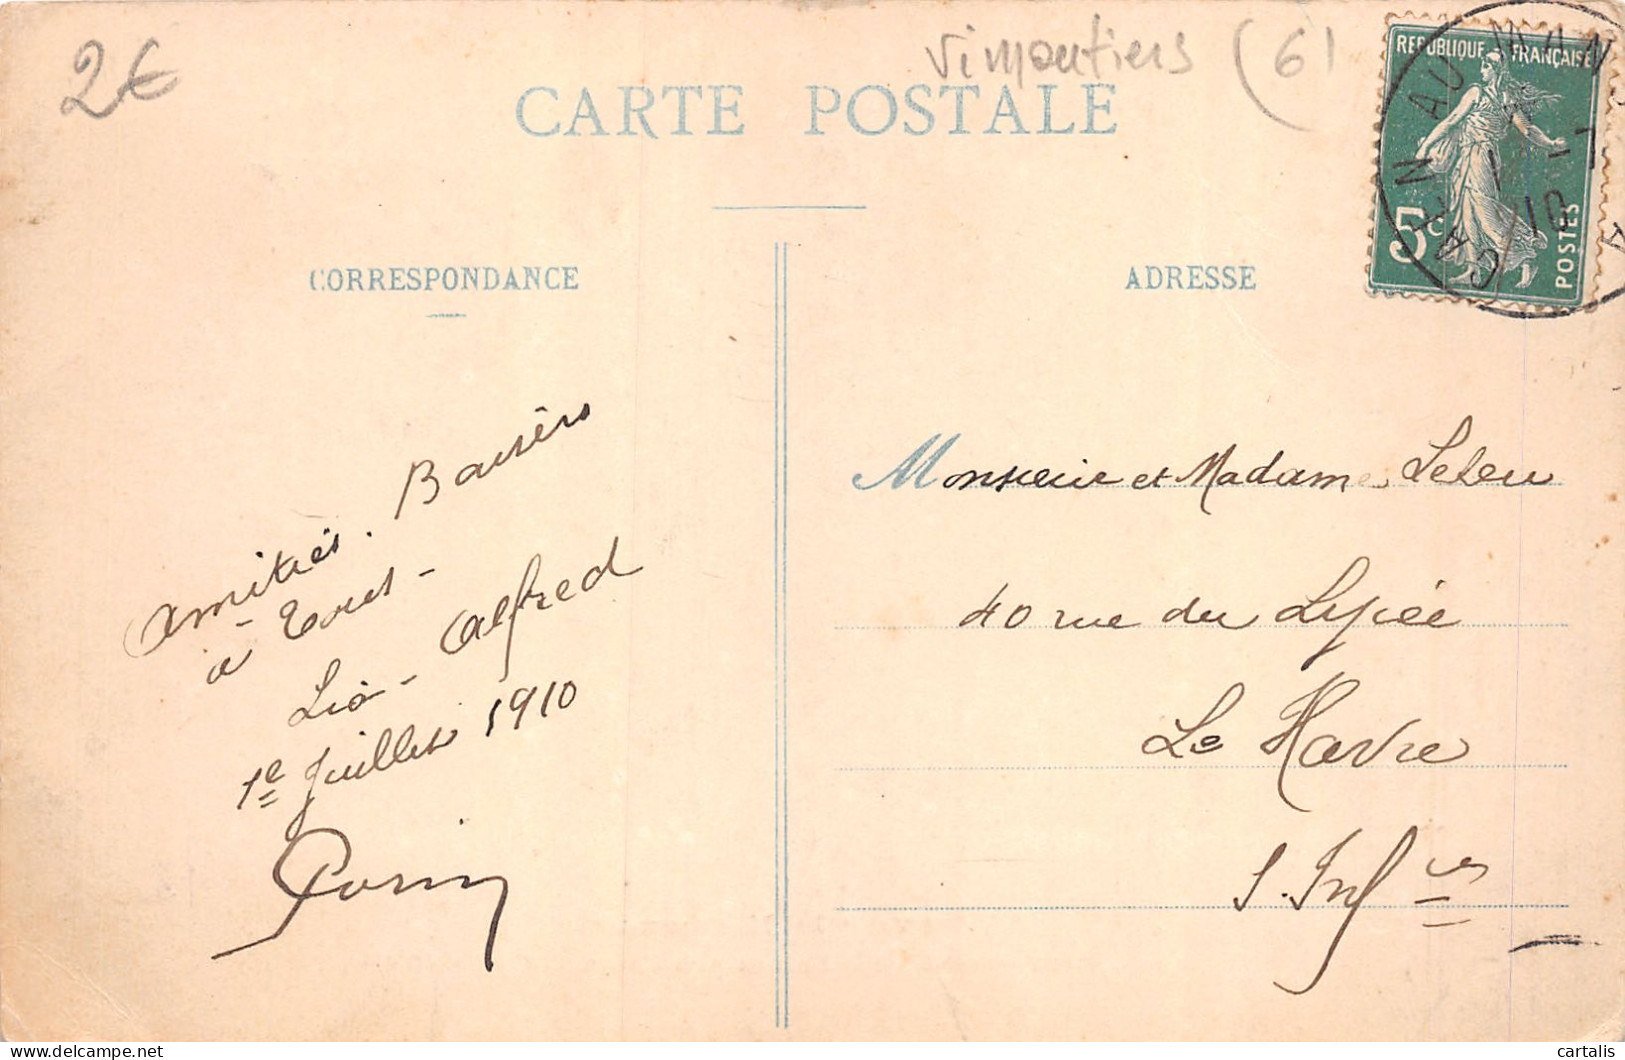 2€
Vimoutiers (61
CARTE POSTALE
REPUBLIQUE FRANÇAISE
5c
POSTES
CAEN AU MAN
CORRESPONDANCE
ADRESSE
Amitiés. Baisers
à Tous -
Léo - Alfred
1e Juillet 1910
Monsieur et Madame Leleu
40 rue du Lycée
Le Havre
S. Infre
delcampe.net
cartalis